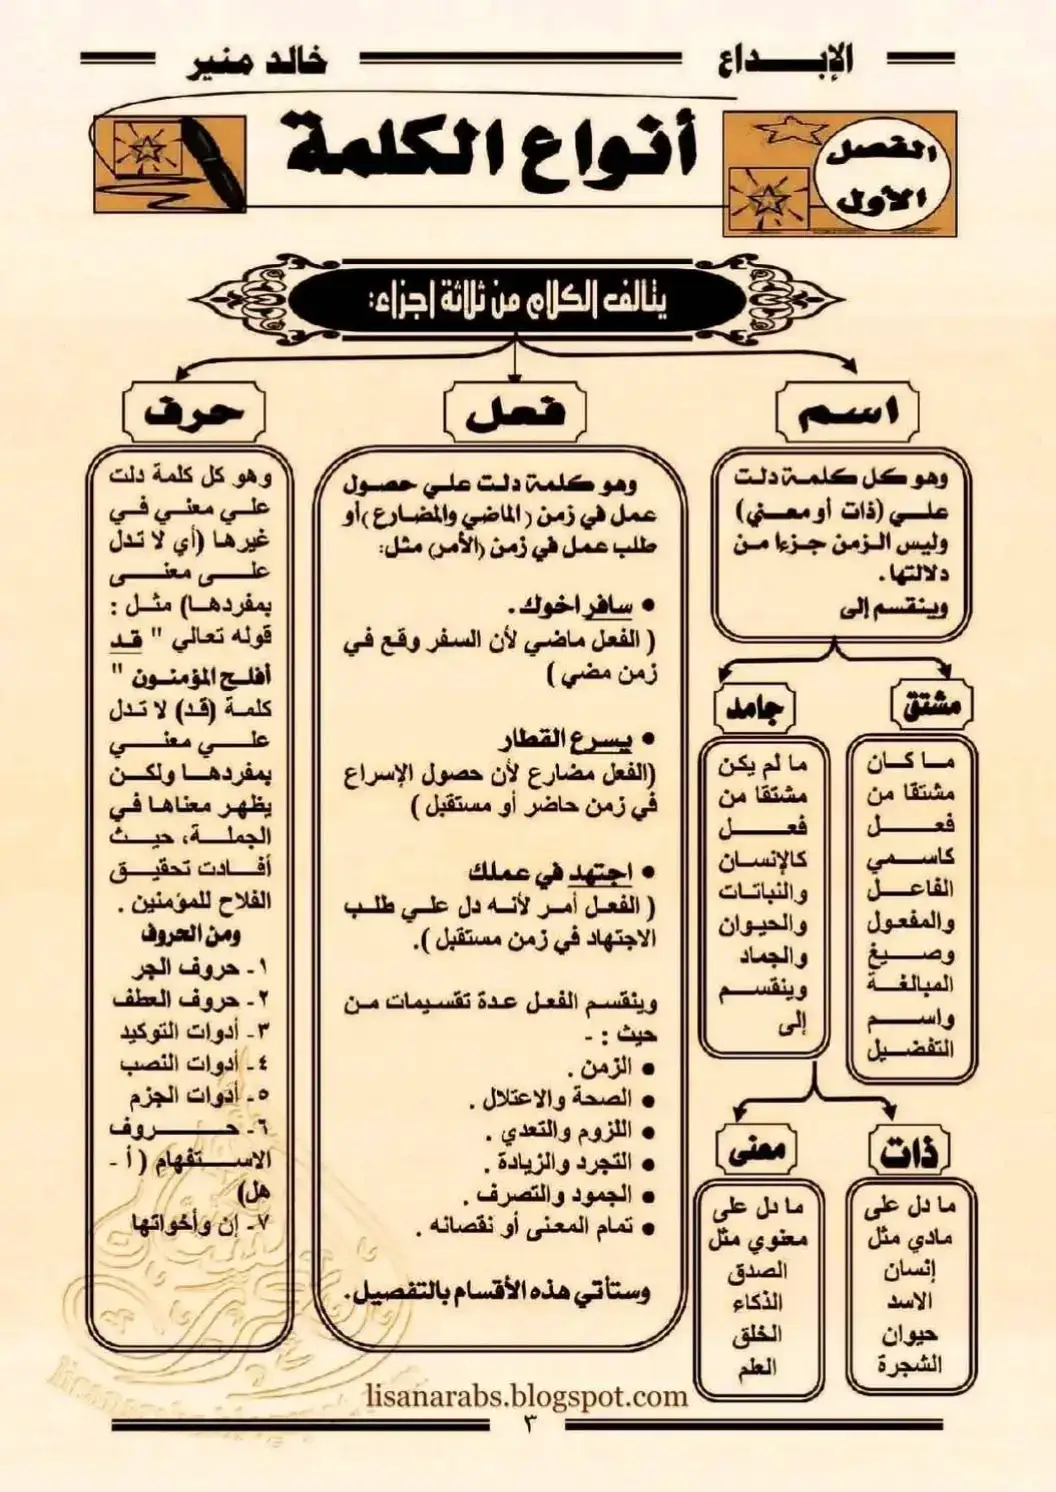 الإبـــداع
خالد منير
الفصل
الأول
أنواع الكلمة
يتألف الكلام من ثلاثة اجزاء:
اسم
وهو كل كلمة دلت
علي (ذات أو معني)
وليس الزمن جزءا من
دلالتها.
وينقسم إلى
مشتق
ما كان
مشتقا من
فعل
كاسمي
الفاعل
والمفعول
وصيغ
المبالغة
واسم
التفضيل
جامد
ما لم يكن
مشتقا من
فعل
كالإنسان
والنباتات
والحيوان
والجماد
وينقسم
إلى
ذات
ما دل على
مادي مثل
إنسان
الاسد
حيوان
الشجرة
معنى
ما دل على
معنوي مثل
الصدق
الذكاء
الخلق
العلم
فعل
وهو كلمة دلت علي حصول
عمل في زمن (الماضي والمضارع) أو
طلب عمل في زمن (الأمر) مثل:
• سافر اخوك.
( الفعل ماضي لأن السفر وقع في
زمن مضي )
• يسرع القطار
(الفعل مضارع لأن حصول الإسراع
في زمن حاضر أو مستقبل )
• اجتهد في عملك
( الفعل أمر لأنه دل علي طلب
الاجتهاد في زمن مستقبل ).
وينقسم الفعل عدة تقسيمات من
حيث : -
• الزمن .
• الصحة والاعتلال .
• اللزوم والتعدي .
• التجرد والزيادة .
• الجمود والتصرف .
• تمام المعنى أو نقصانه .
وستأتي هذه الأقسام بالتفصيل.
حرف
وهو كل كلمة دلت
علي معني في
غيرها (أي لا تدل
على معنى
بمفردها) مثل :
قوله تعالي " قد
أفلح المؤمنون "
كلمة (قد) لا تدل
علي معني
بمفردها ولكن
يظهر معناها في
الجملة، حيث
أفادت تحقيق
الفلاح للمؤمنين .
ومن الحروف
١- حروف الجر
٢- حروف العطف
٣- أدوات التوكيد
٤- أدوات النصب
٥- أدوات الجزم
٦- حروف
الاستفهام ( أ -
هل)
٧- إن وأخواتها
lisanarabs.blogspot.com
٣